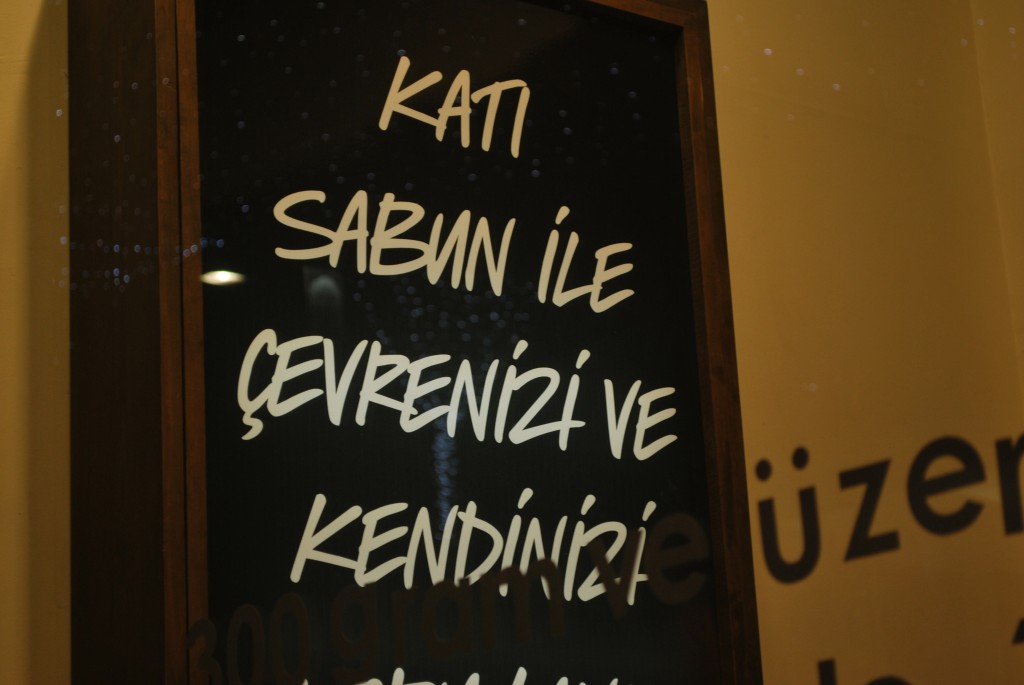 KATI
SABUN İLE
ÇEVRENİZİ VE
KENDİNİZİ
300 gram ve üzer